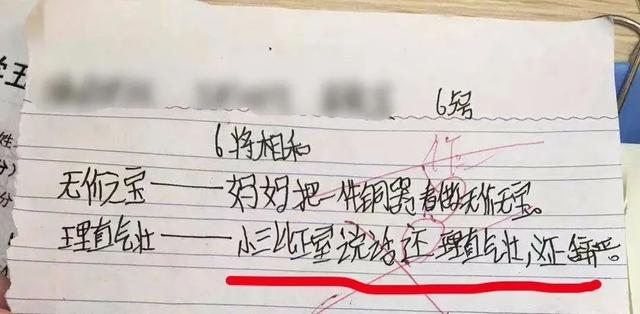 6号
6将相和
无价之宝——妈妈把一件铜器看做无价无宝。
理直气壮——小三比正室说话还理直气壮，